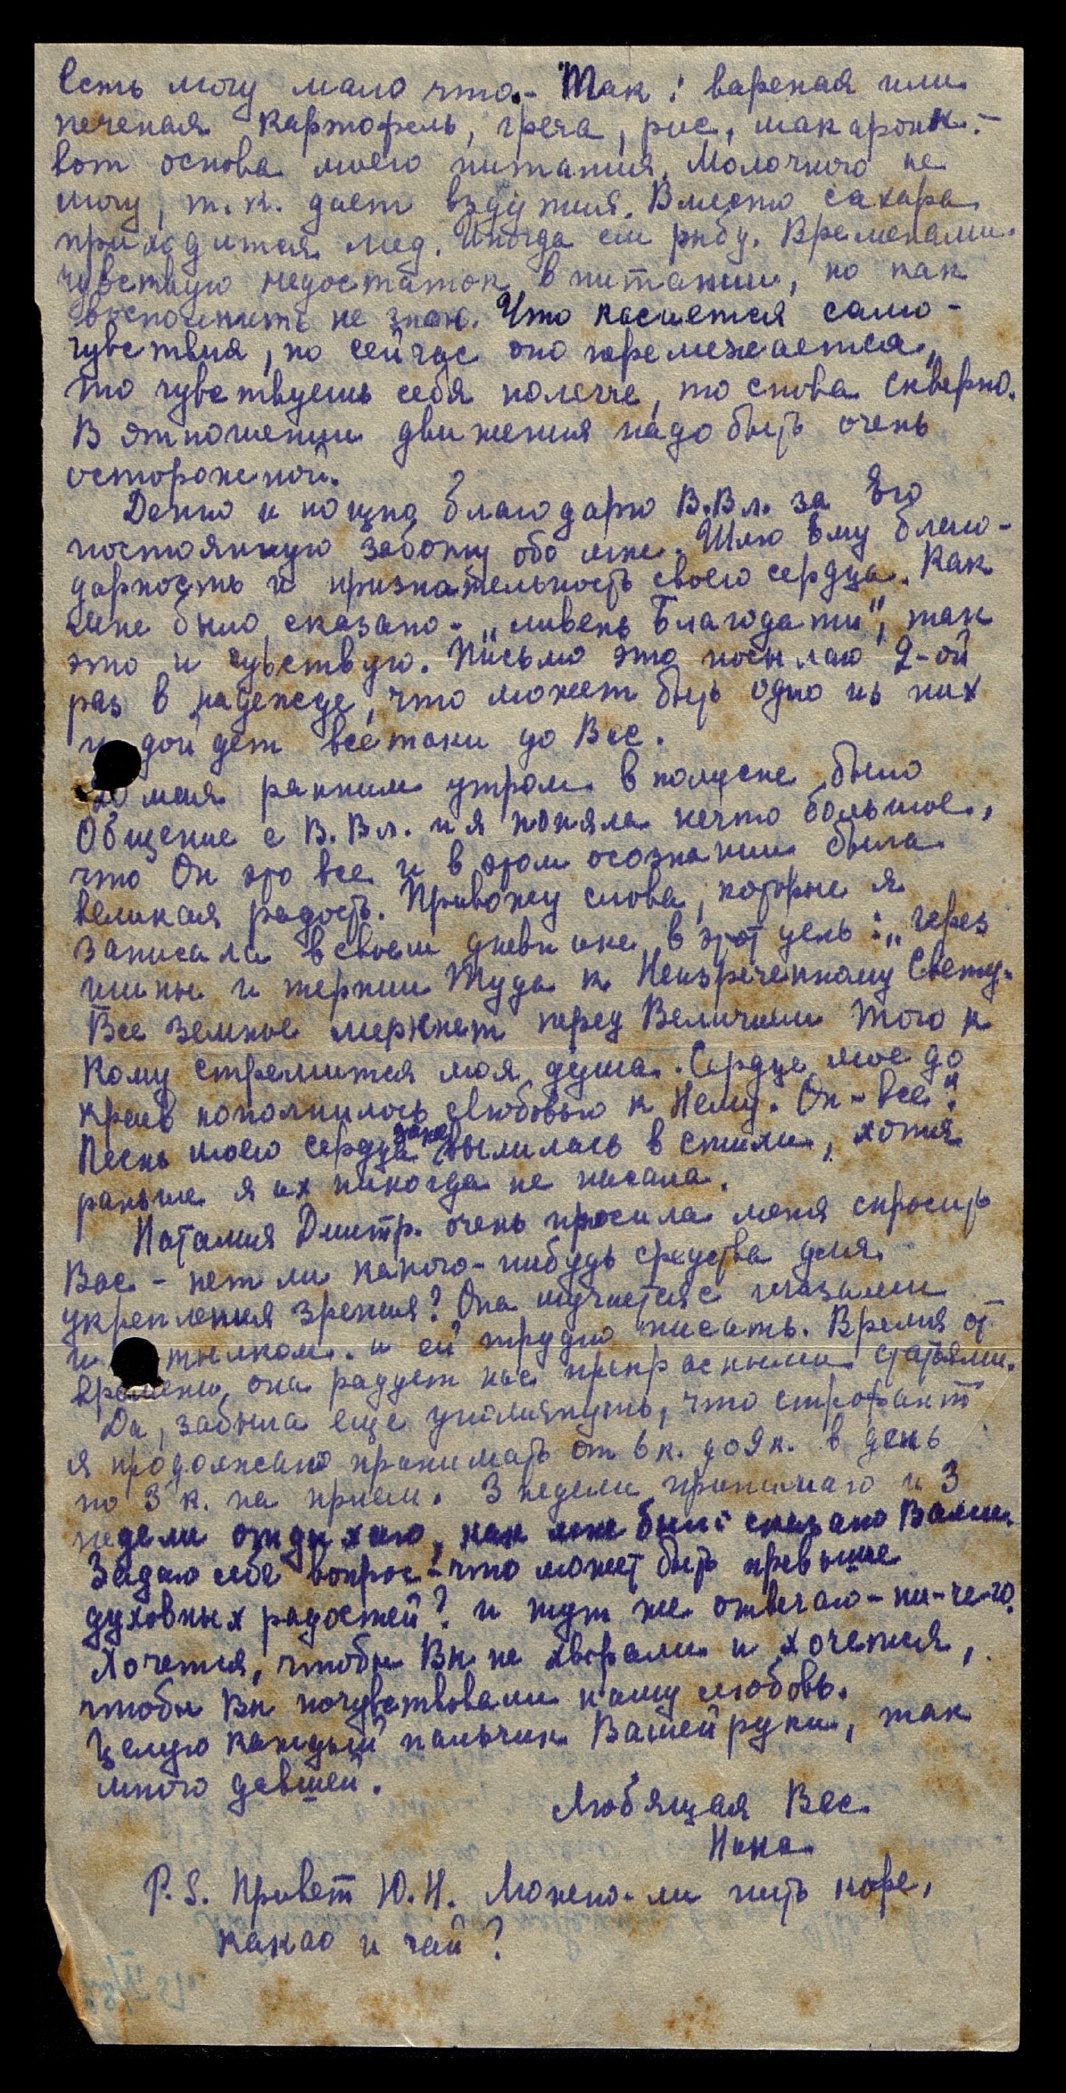 Есть могу мало что.- Так: вареная или
печеная картофель, греча, рис, макароны.-
вот основа моего питания. Молочного не
могу, т.к. дает вздутия. Вместо сахара
приходится мед. Иногда ем рыбу. Временами
чувствую недостаток в питании, но как
восполнить не знаю. Что касается само-
чувствия, то сейчас оно перемежается,
то чувствуешь себя полегче, то снова скверно.
В отношении движения надо быть очень
осторожной.
Денно и нощно благодарю В.Вл. за Его
постоянную заботу обо мне. Шлю Ему благо-
дарность и признательность своего сердца. Как
мне было сказано - „ливень Благодати", так
это и чувствую. Письмо это посылаю 2-ой
раз в надежде, что может быть одно из них
и дойдет всетаки до Вас.
20 мая ранним утром в полусне было
Общение с В.Вл. и я поняла нечто большое,
что Он это все и в этом осознании была
великая радость. Привожу слова, которые я
записала в своем дневнике в этот день: „через
шипы и тернии Туда к Неизреченному Свету.
Все земное меркнет перед Величием Того к
Кому стремится моя душа. Сердце мое до
краев наполнилось Любовью к Нему. Он - все".
Песнь моего сердца даже вылилась в стихи, хотя
раньше я их никогда не писала.
Наталия Дмитр. очень просила меня спросить
Вас - нет ли какого-нибудь средства для
укрепления зрения? Она мучается с глазами
и затылком. и ей трудно писать. Время от
времени, она радует нас прекрасными статьями.
Да, забыла еще упомянуть, что строфант
я продолжаю принимать от 6 к. до 9 к. в день
по 3 к. на прием. 3 недели принимаю и 3
недели отдыхаю, как мне было сказано Вами.
Задаю себе вопрос - что может быть превыше
духовных радостей? и тут же отвечаю - ни-че-го.
Хочется, чтобы Вы не хворали и хочется,
чтобы Вы почувствовали нашу любовь.
Целую каждый пальчик Вашей руки, так
много давшей.
Любящая Вас
Нина
P.S. Привет Ю.Н. Можно-ли пить кофе,
какао и чай?